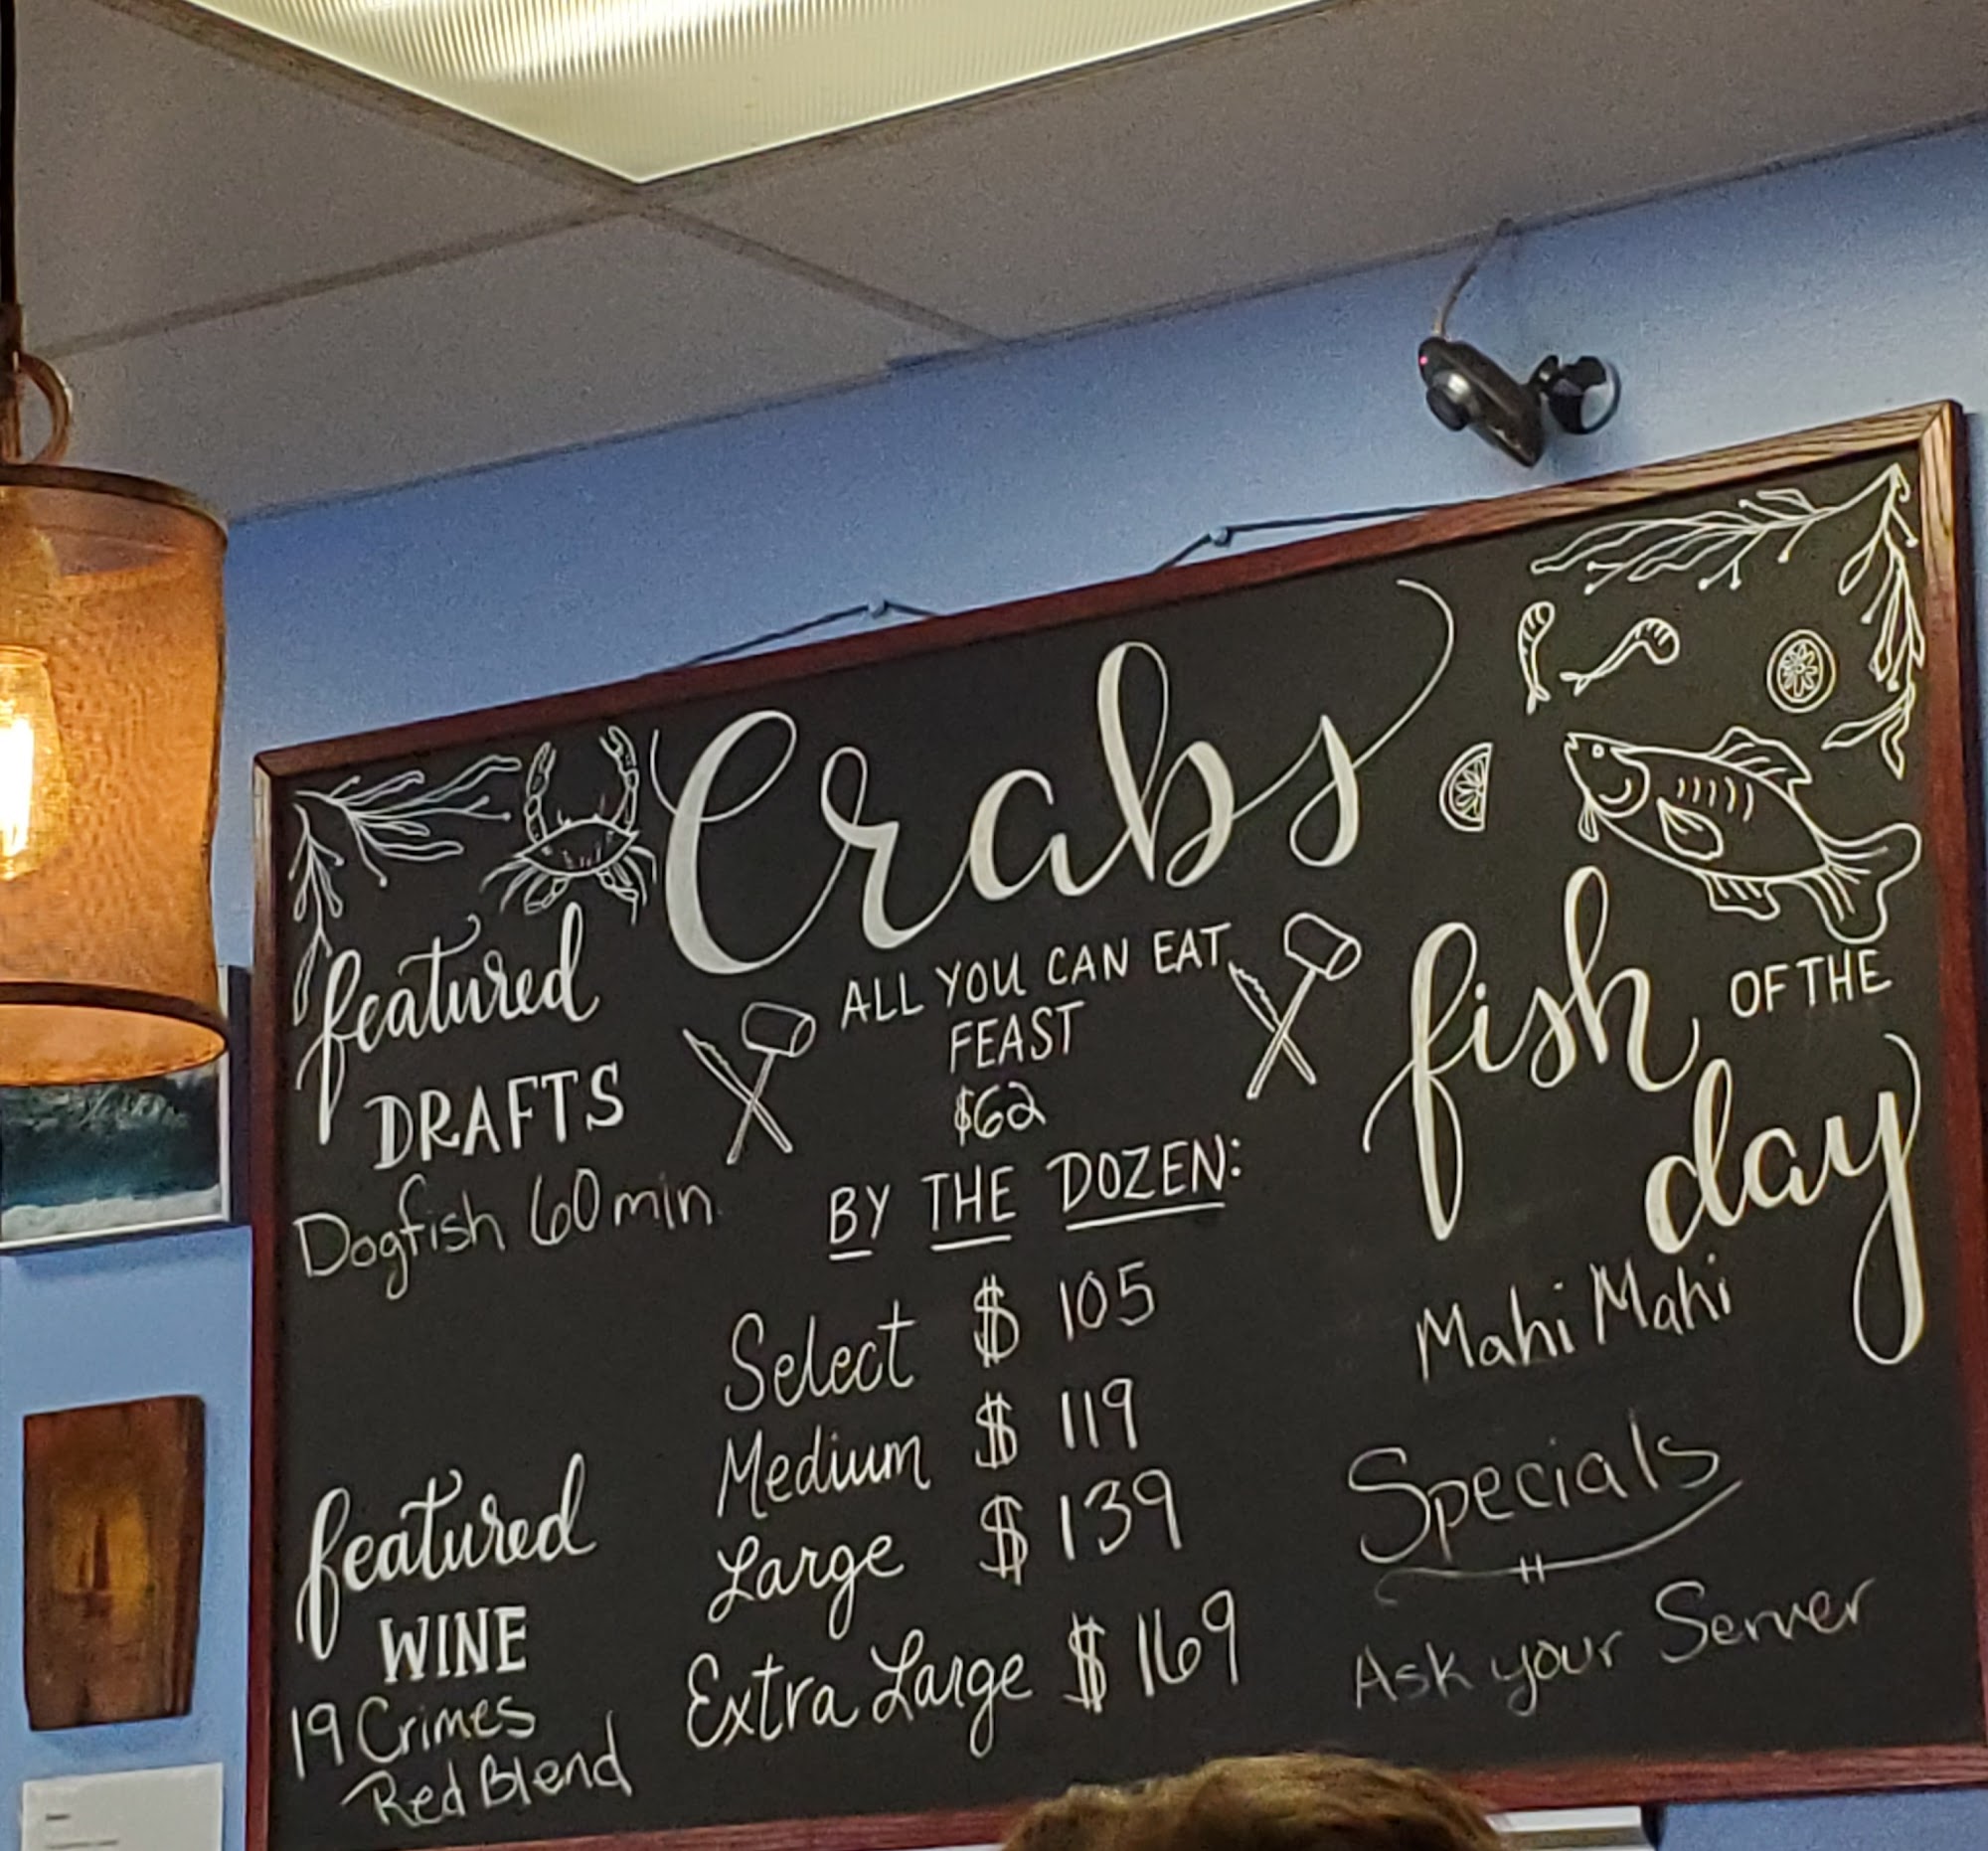 Crabs
ALL YOU CAN EAT
FEAST
$62
BY THE DOZEN:
Select $ 105
Medium $ 119
Large $ 139
Extra Large $ 169
featured
DRAFTS
Dogfish 60 min
featured
WINE
19 Crimes
Red Blend
fish OF THE
day
Mahi Mahi
Specials
Ask your Server